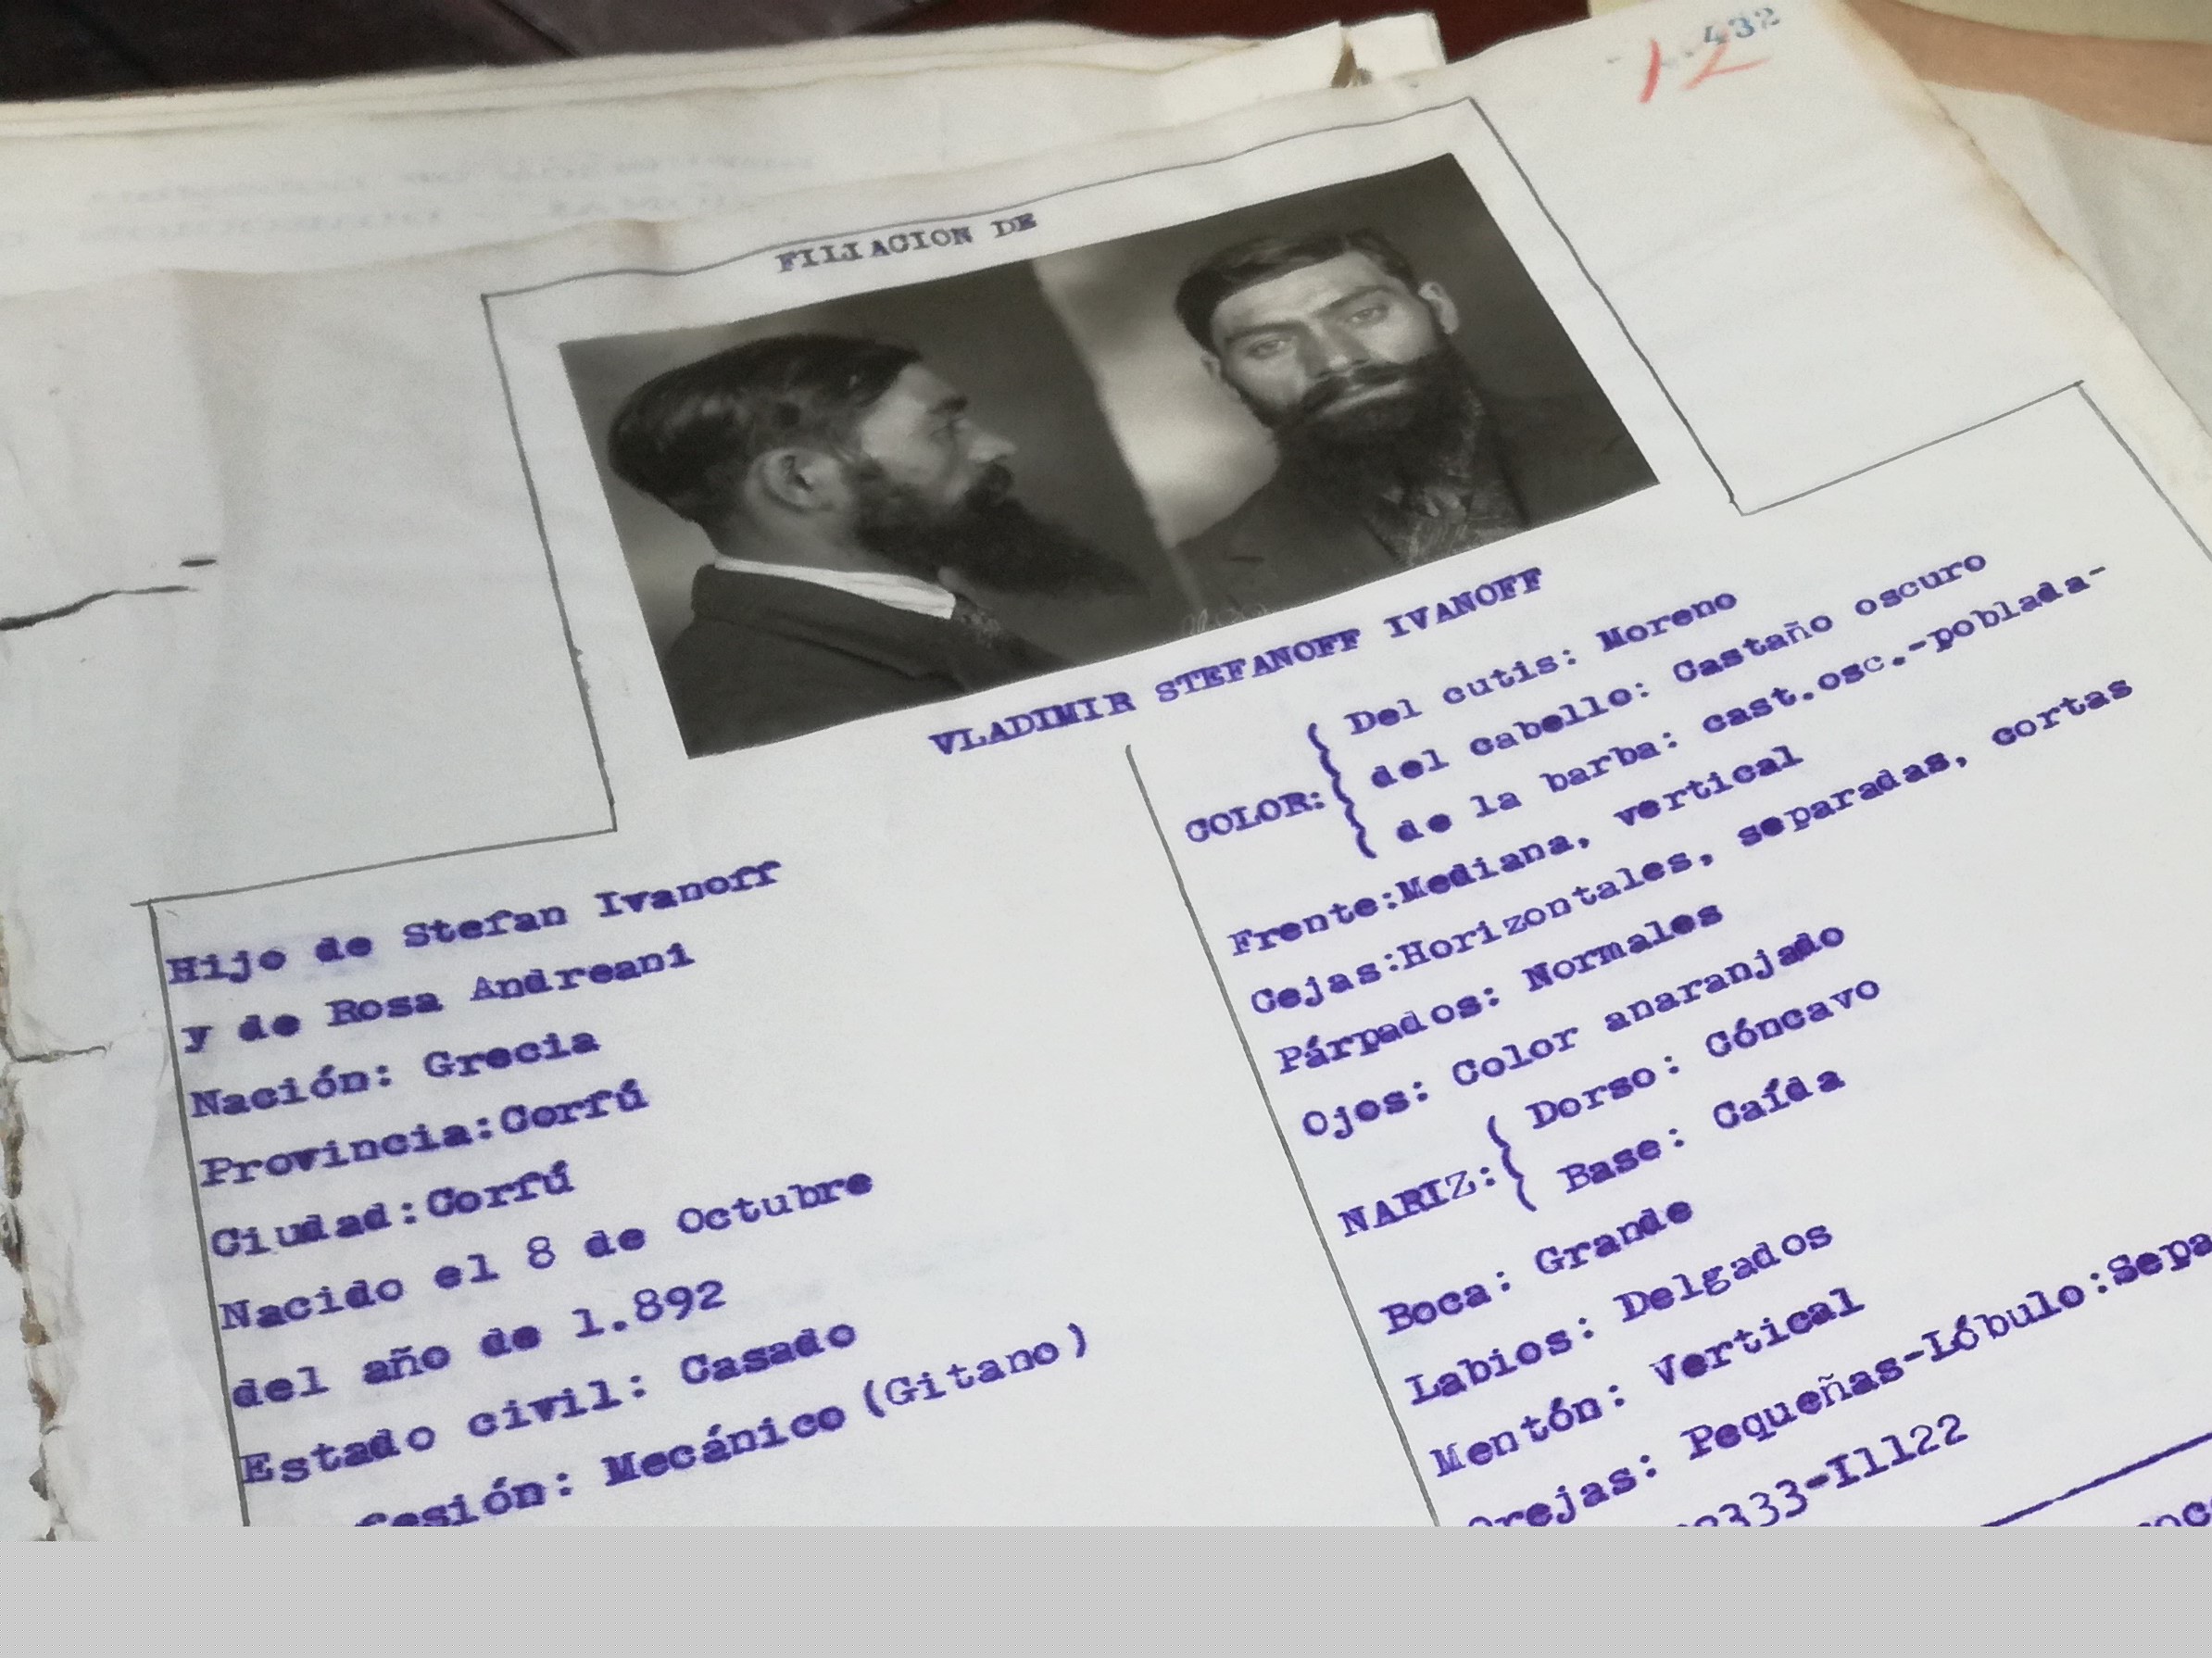 432
12
FILIACION DE
VLADIMIR STEFANOFF IVANOFF
Hijo de Stefan Ivanoff
y de Rosa Andreani
Nación: Grecia
Provincia:Corfú
Ciudad:Corfú
Nacido el 8 de Octubre
del año de 1.892
Estado civil: Casado
fesión: Mecánico (Gitano)
COLOR:
Del cutis: Moreno
del cabello: Castaño oscuro
de la barba: cast.osc.-poblada-
Frente:Mediana, vertical
Cejas:Horizontales, separadas, cortas
Párpados: Normales
Ojos: Color anaranjado
NARIZ:
Dorso: Cóncavo
Base: Caída
Boca: Grande
Labios: Delgados
Mentón: Vertical
Orejas: Pequeñas-Lóbulo:Sepa
333-I1122